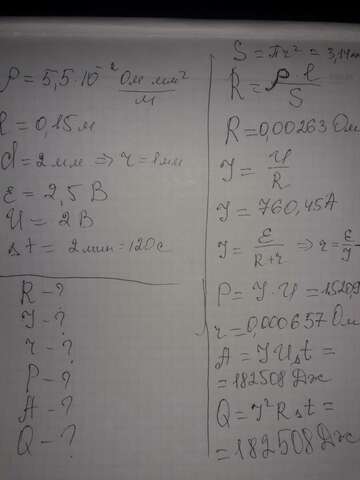 ρ = 5,5·10⁻² Ом мм²/м
l = 0,15 м
d = 2 мм ⇒ r = 1 мм
ε = 2,5 В
U = 2 В
Δt = 2 мин = 120 с
R - ?
J - ?
r - ?
P - ?
A - ?
Q - ?
S = πr² = 3,14
R = ρ·l/S
R = 0,00263 Ом
J = U/R
J = 760,45 А
J = ε/(R+r) ⇒ r = ε/J -
P = J·U = 1520,9
r = 0,000657 Ом
A = JUΔt =
= 182508 Дж
Q = J²RΔt =
= 182508 Дж